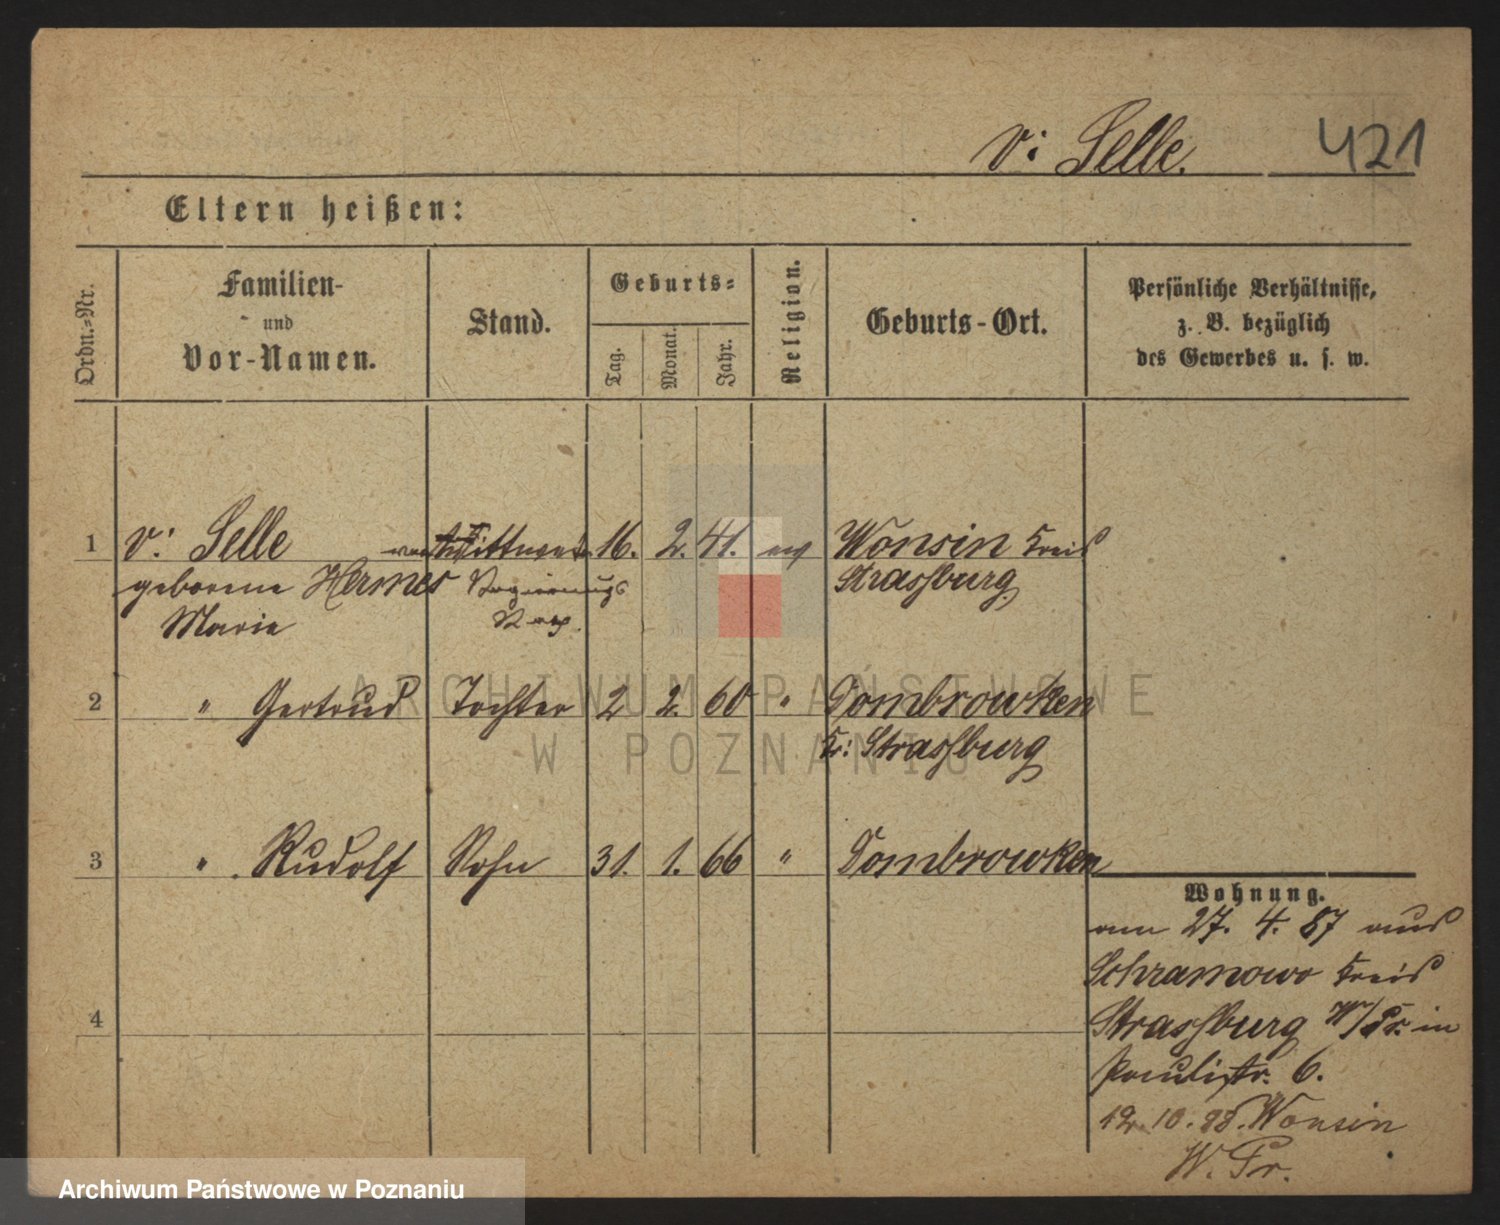 v: Selle. 421
Eltern heißen:
Ordn.=Nr.
Familien-
und
Vor-Namen.
Stand.
Geburts=
Tag.
Monat.
Jahr.
Religion.
Geburts-Ort.
Persönliche Verhältnisse,
z. B. bezüglich
des Gewerbes u. s. w.
1 v: Selle Wittwe 16. 2. 41. ev Wonsin Kreis
geborene Hermes Regierungs Strassburg
Marie
2 " Gertrud Tochter 2 2. 60 " Dombrowken
Kr: Strassburg
3 " Rudolf Sohn 31. 1. 66 " Dombrowken
Wohnung.
am 27. 4. 87 aus
Schramowo Kreis
4 Strassburg W/Pr. in
Paulistr. 6.
12. 10. 88. Wonsin
W. Pr.
ARCHIWUM PAŃSTWOWE
W POZNANIU
Archiwum Państwowe w Poznaniu